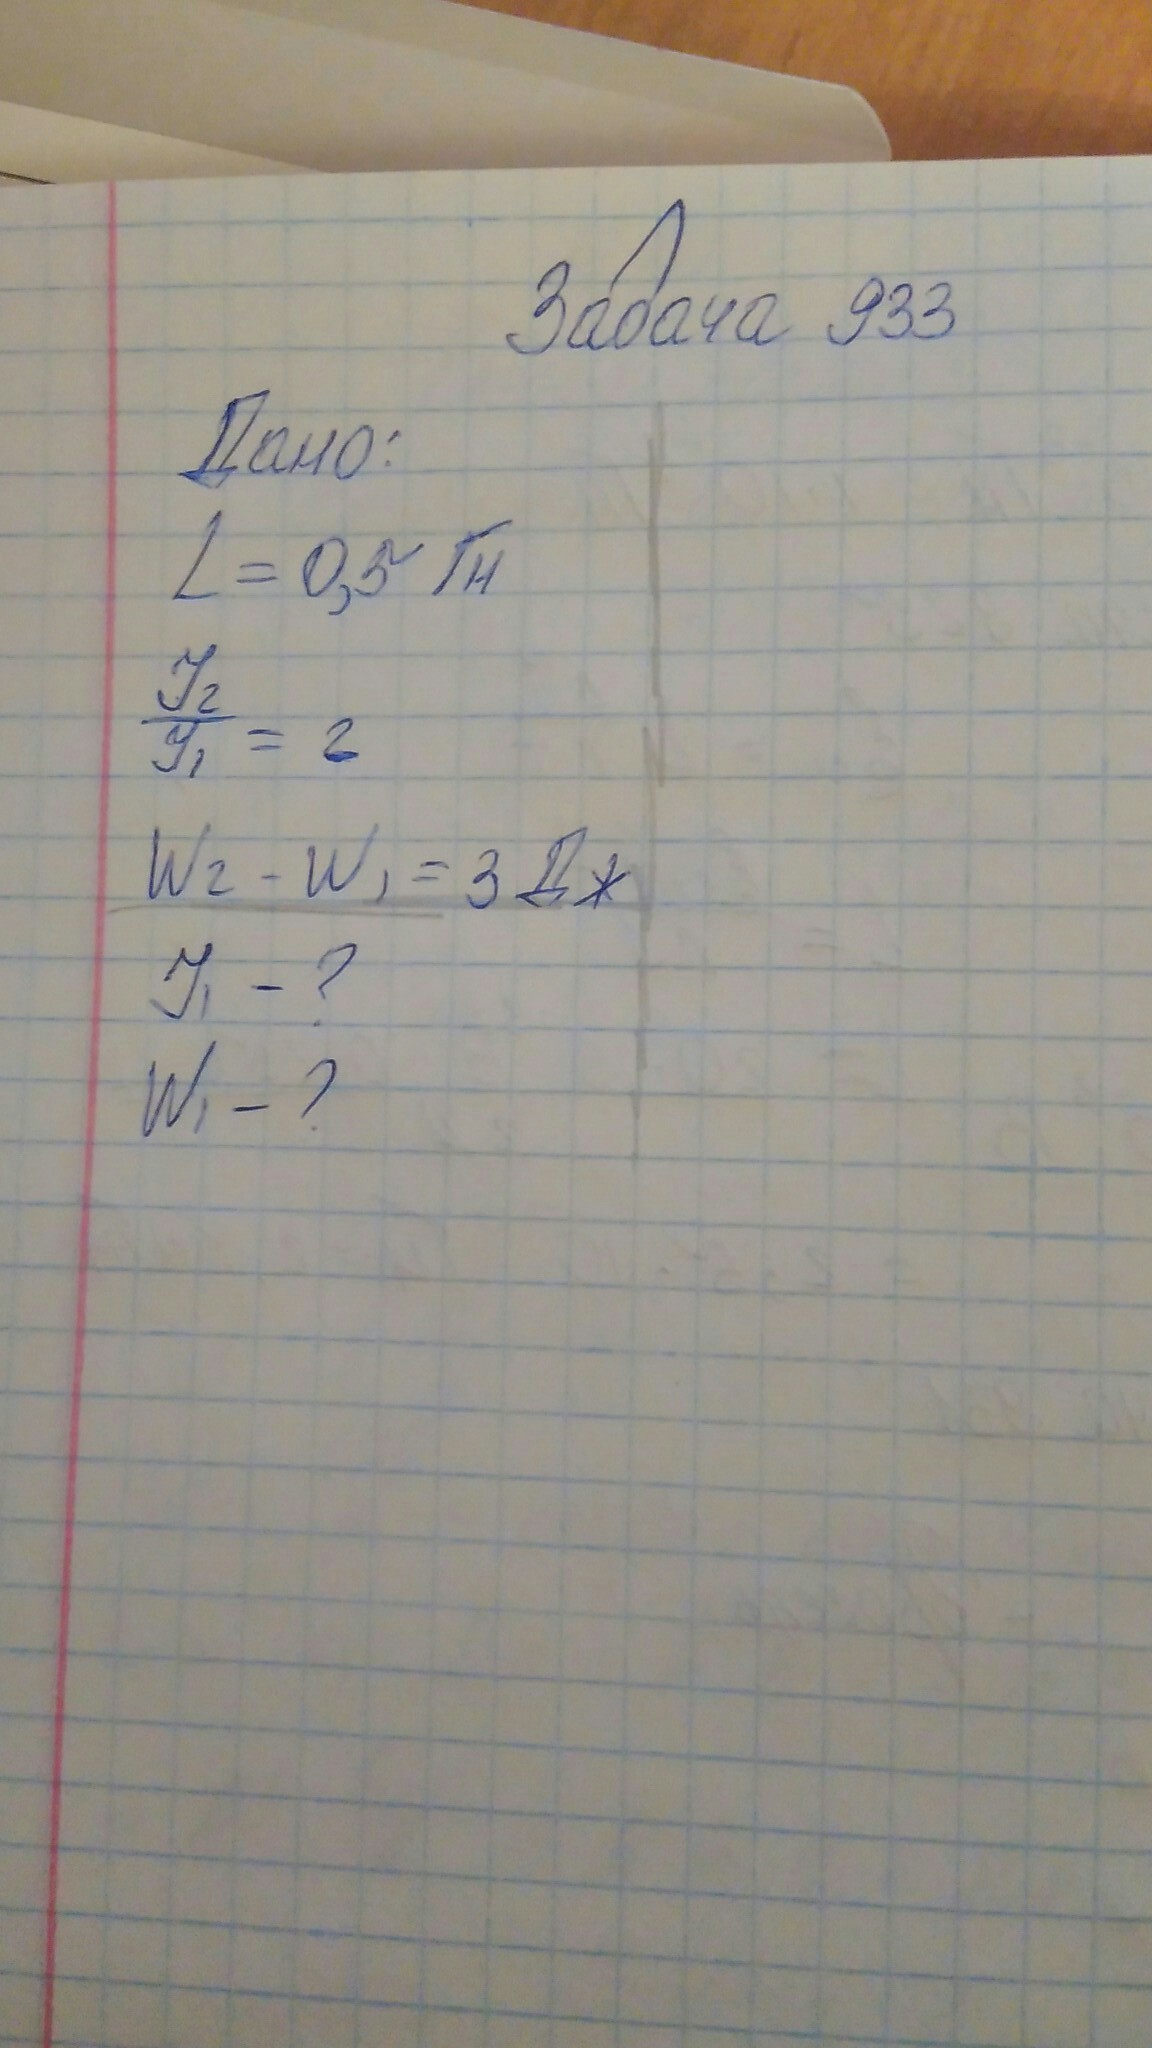 Задача 933
Дано:
L = 0,5 Гн
I₂
I₁ = 2
W₂ - W₁ = 3 Дж
I₁ - ?
W₁ - ?